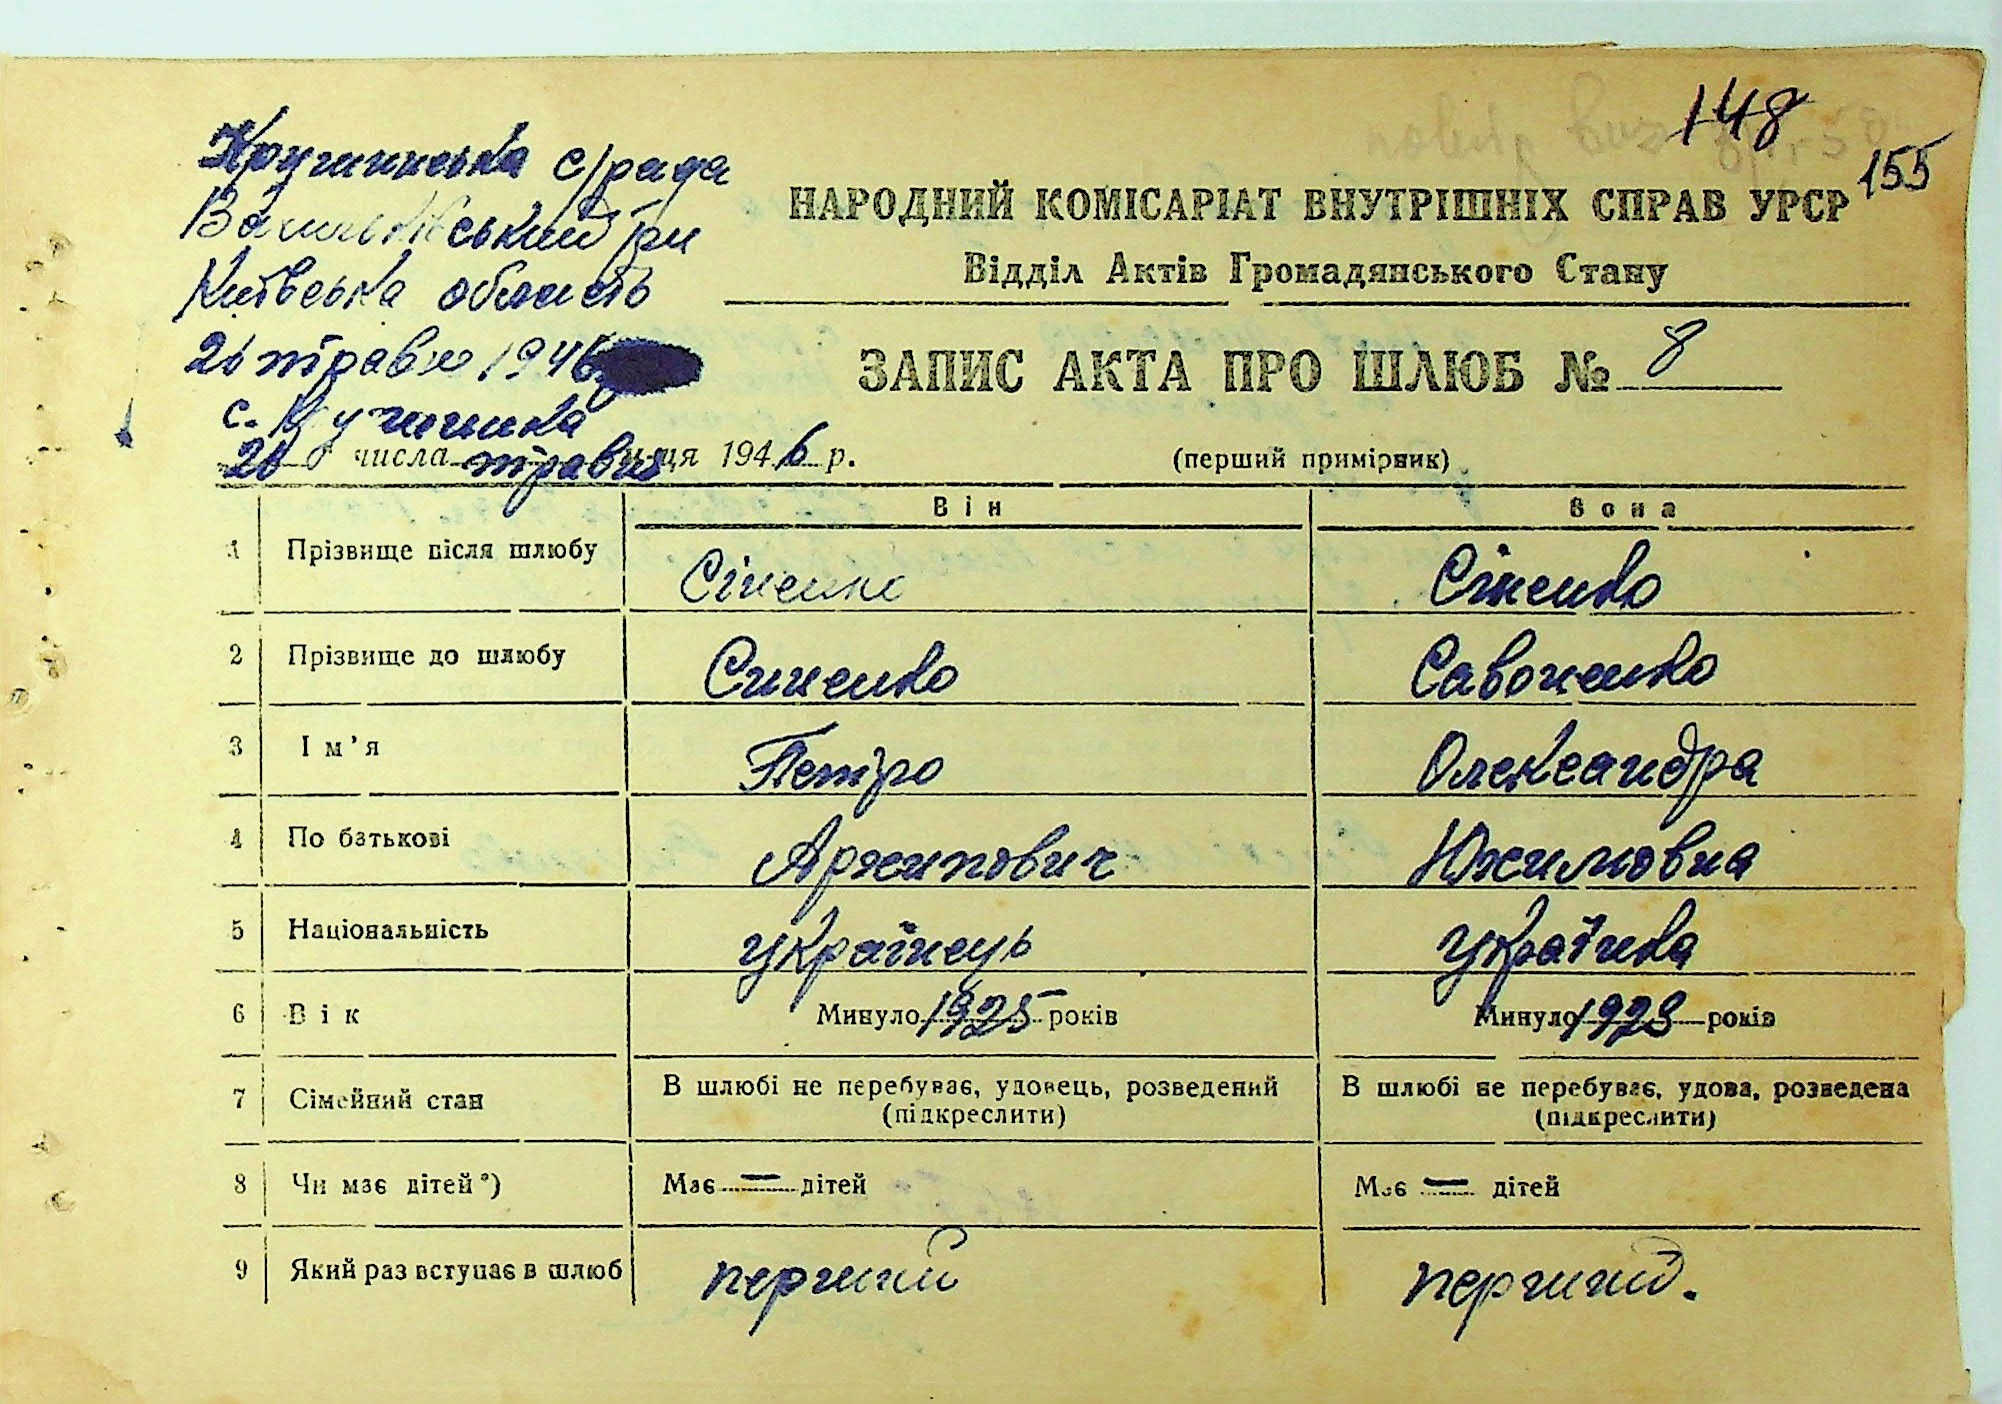 148
155
Кружинська с/рада
Васильківський р-н
Київська область
26 травня 1946
с. Кружинка
26 числа травня м-ця 1946 р.
НАРОДНИЙ КОМІСАРІАТ ВНУТРІШНІХ СПРАВ УРСР
Відділ Актів Громадянського Стану
ЗАПИС АКТА ПРО ШЛЮБ № 8
(перший примірник)
Він Вона
1 Прізвище після шлюбу Сіненко Сіненко
2 Прізвище до шлюбу Синенко Савоненко
3 Ім’я Петро Олександра
4 По батькові Архипович Юхимовна
5 Національність українець українка
6 Вік Минуло 1925 років Минуло 1923 років
7 Сімейний стан В шлюбі не перебуває, удовець, розведений (підкреслити) В шлюбі не перебуває, удова, розведена (підкреслити)
8 Чи має дітей*) Має — дітей Має — дітей
9 Який раз вступає в шлюб перший перший.